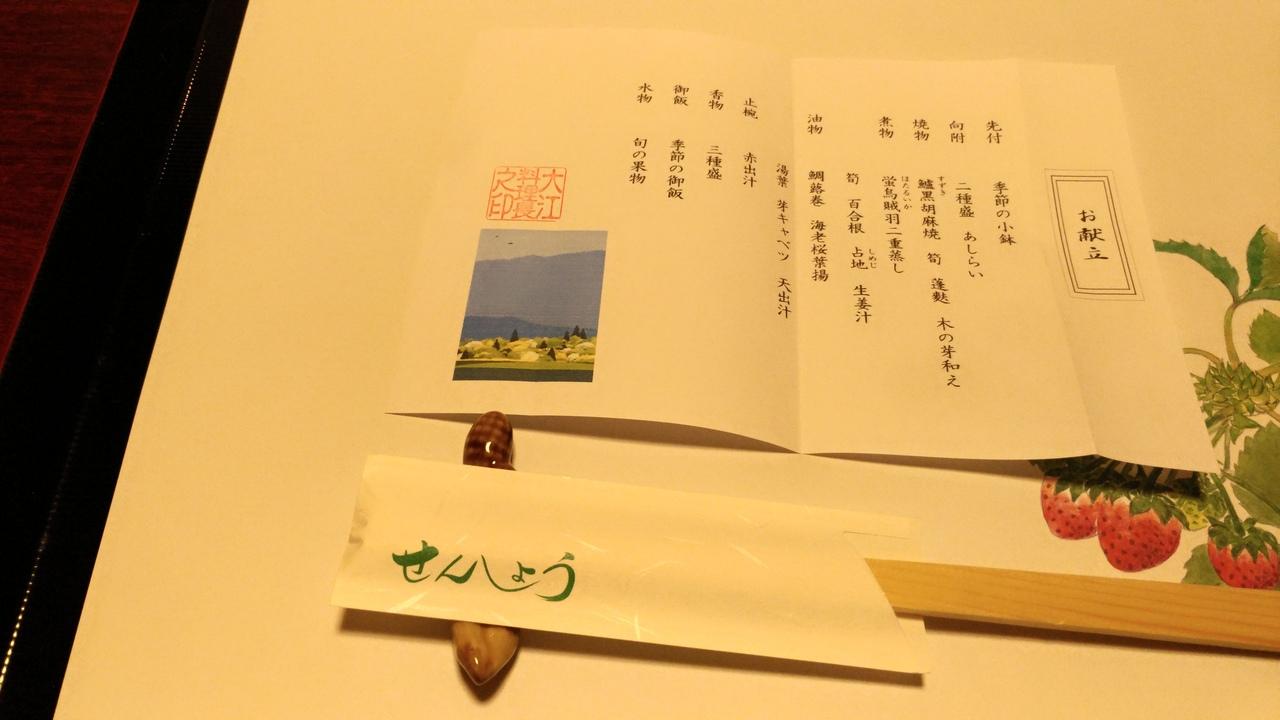 お献立
先付 季節の小鉢
向附 二種盛 あしらい
焼物 鱸黒胡麻焼 筍 蓬麩 木の芽和え
すずき
煮物 蛍烏賊羽二重蒸し
ほたるいか
筍 百合根 占地 生姜汁
しめじ
油物 鯛蕗巻 海老桜葉揚
湯葉 芽キャベツ 天出汁
止椀 赤出汁
香物 三種盛
御飯 季節の御飯
水物 旬の果物
大江
料理長
之印
せんしょう